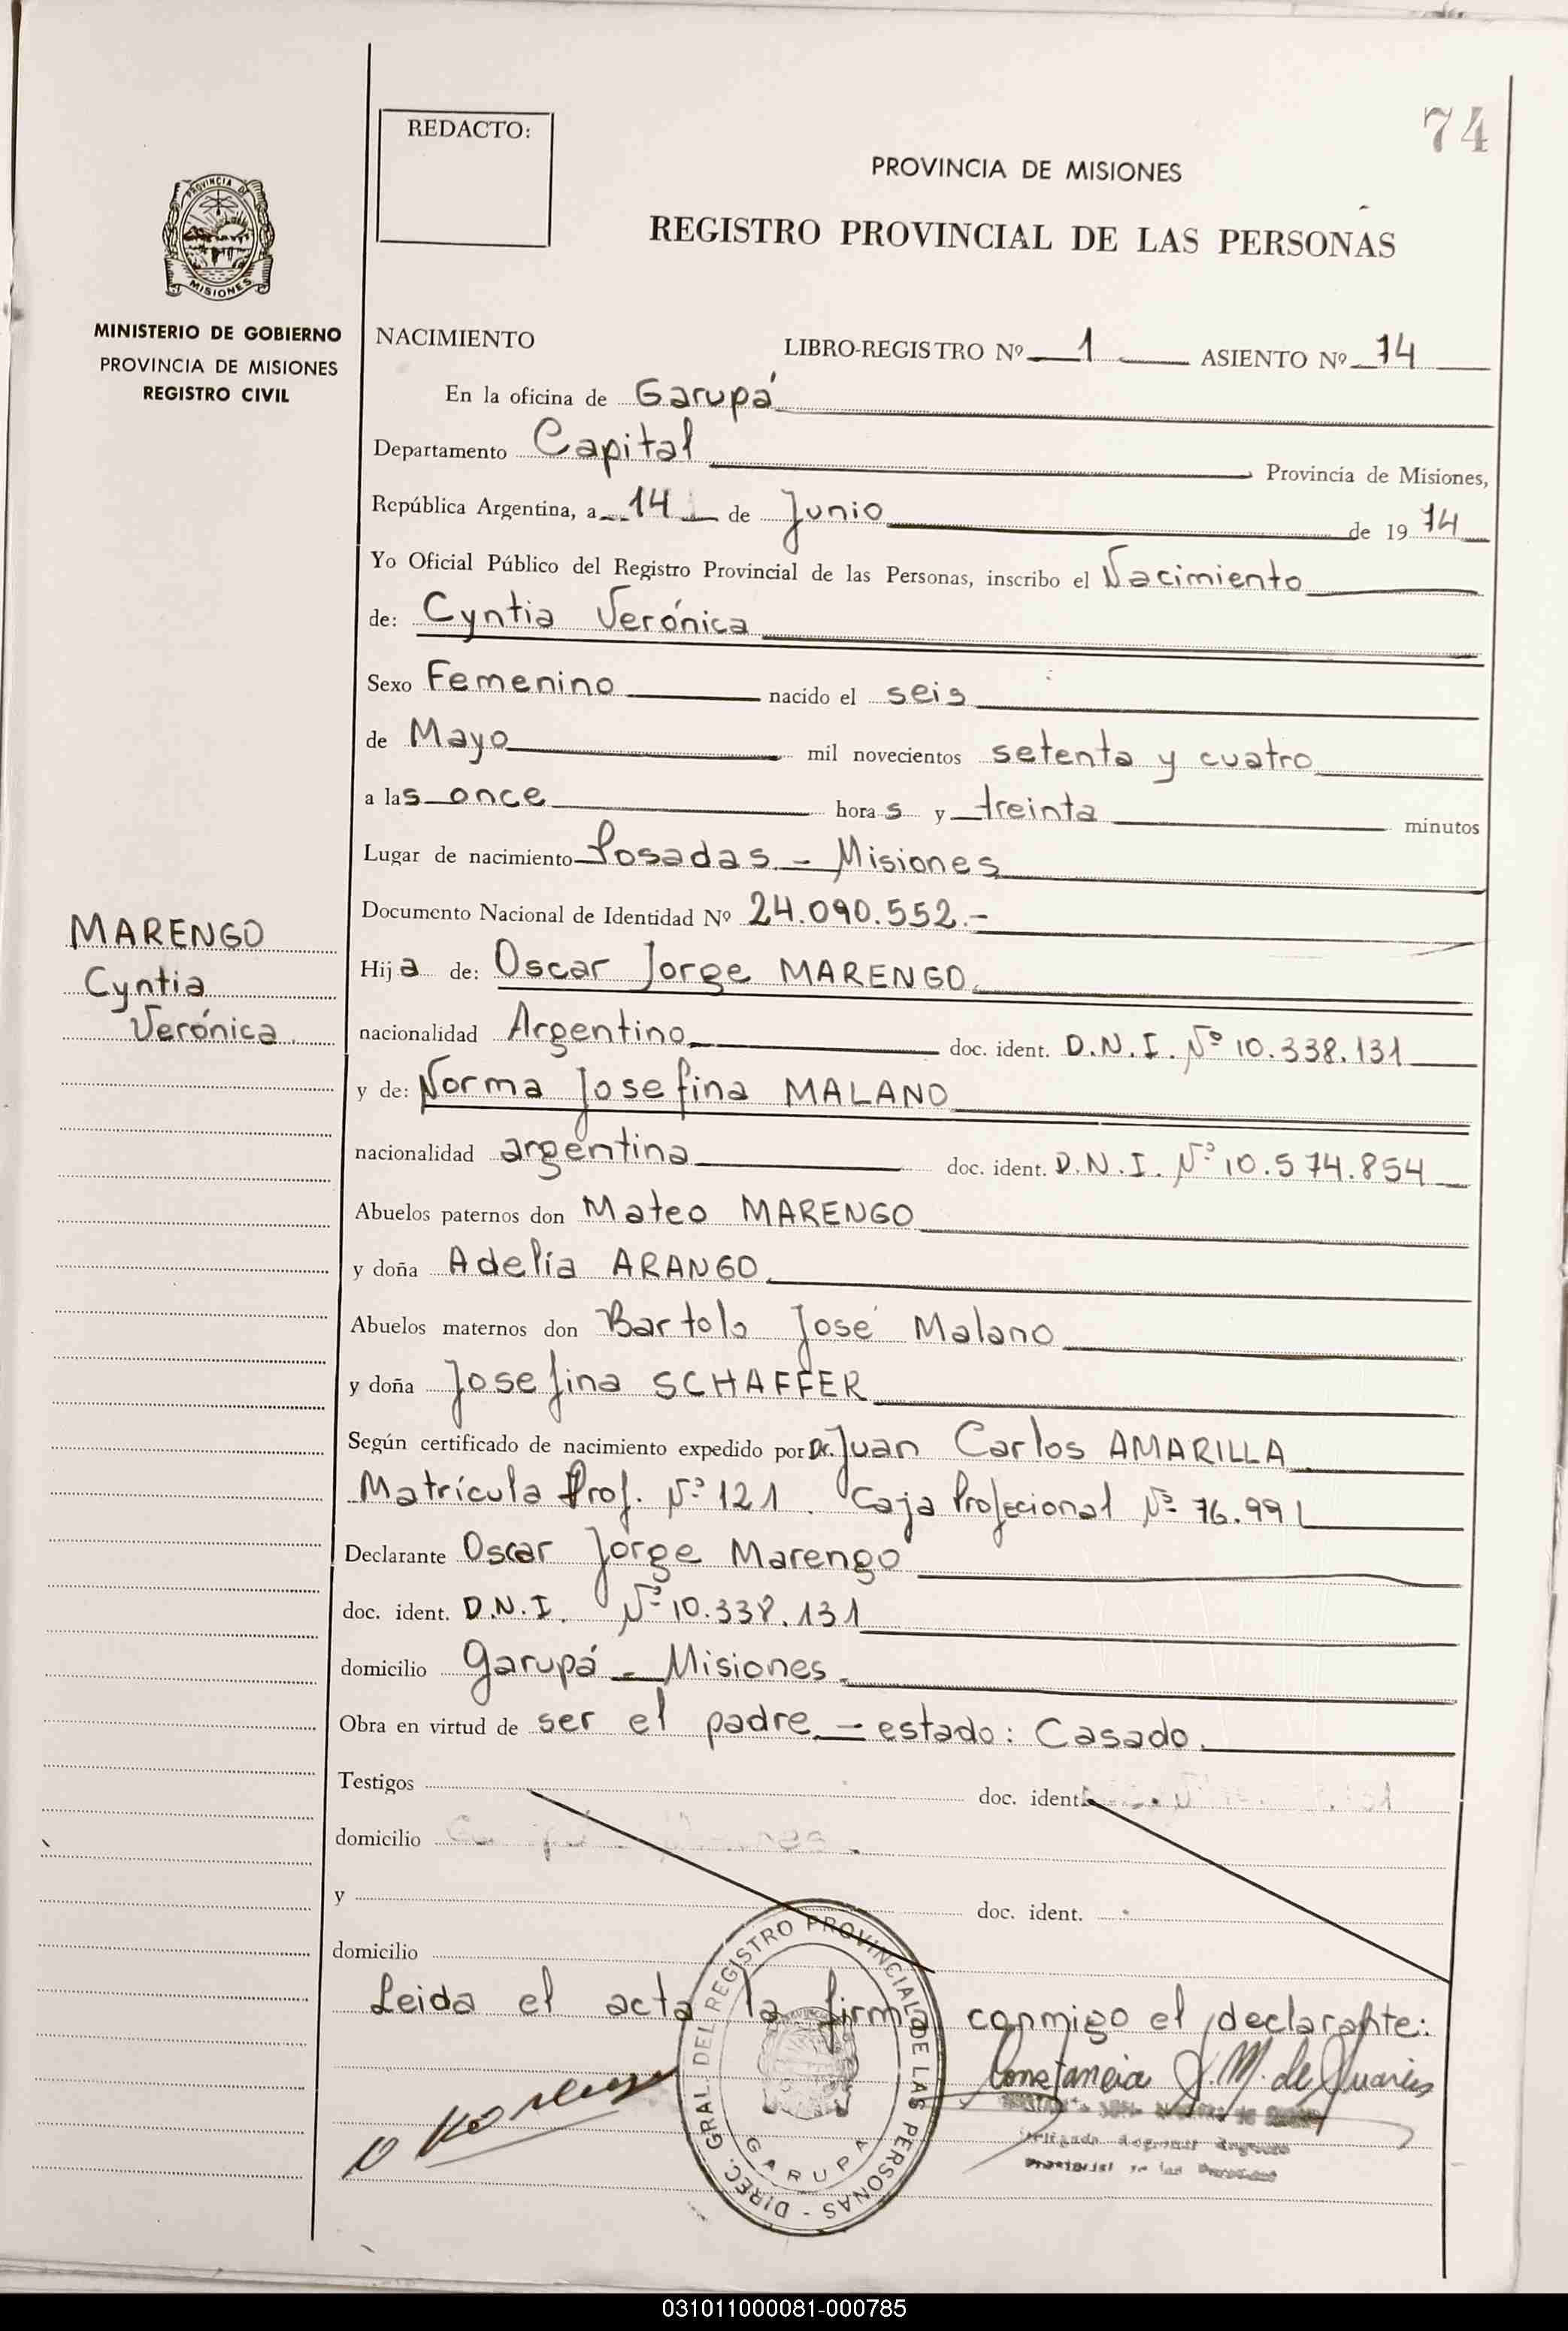 74
REDACTO:
PROVINCIA DE MISIONES
REGISTRO PROVINCIAL DE LAS PERSONAS
PROVINCIA DE
MISIONES
MINISTERIO DE GOBIERNO
PROVINCIA DE MISIONES
REGISTRO CIVIL
NACIMIENTO LIBRO-REGISTRO Nº 1 ASIENTO Nº 74
En la oficina de Garupá
Departamento Capital Provincia de Misiones,
República Argentina, a 14 de Junio de 19 74
Yo Oficial Público del Registro Provincial de las Personas, inscribo el Nacimiento
de: Cyntia Verónica
Sexo Femenino nacido el seis
de Mayo mil novecientos setenta y cuatro
a las once horas y treinta minutos
Lugar de nacimiento Posadas - Misiones
Documento Nacional de Identidad Nº 24.090.552.-
MARENGO
Cyntia
Verónica.
Hija de: Oscar Jorge MARENGO
nacionalidad Argentino doc. ident. D.N.I. Nº 10.338.131
y de: Norma Josefina MALANO
nacionalidad argentina doc. ident. D.N.I. Nº 10.574.854
Abuelos paternos don Mateo MARENGO
y doña Adelia ARANGO
Abuelos maternos don Bartolo José Malano
y doña Josefina SCHAFFER
Según certificado de nacimiento expedido por Dr. Juan Carlos AMARILLA
Matrícula Prof. Nº 121. Caja Profecional Nº 76.991
Declarante Oscar Jorge Marengo
doc. ident. D.N.I. Nº 10.338.131
domicilio Garupá - Misiones.
Obra en virtud de ser el padre. - estado: Casado.
Testigos doc. ident.
domicilio
y doc. ident.
domicilio
Leida el acta la firma conmigo el declarante:
Constancia J. M. de Juarez
DIREC. GRAL. DEL REGISTRO PROVINCIAL DE LAS PERSONAS -
GARUPA
031011000081-000785